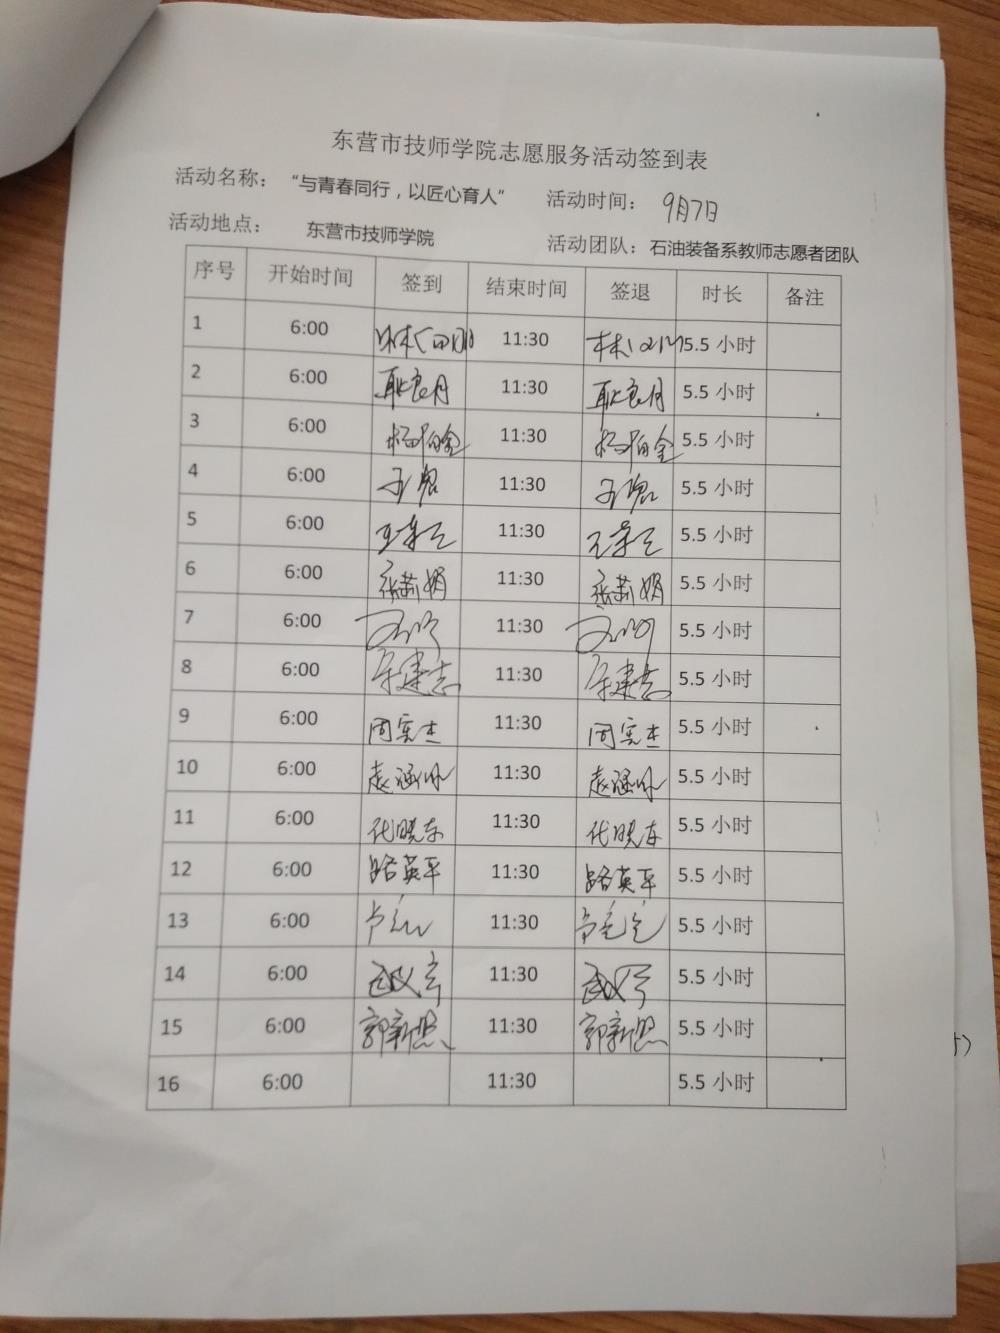 东营市技师学院志愿服务活动签到表
活动名称： “与青春同行，以匠心育人” 活动时间： 9月7日
活动地点： 东营市技师学院 活动团队：石油装备系教师志愿者团队
序号 开始时间 签到 结束时间 签退 时长 备注
1 6:00 11:30 5.5 小时
2 6:00 耿良月 11:30 耿良月 5.5 小时
3 6:00 11:30 5.5 小时
4 6:00 11:30 5.5 小时
5 6:00 11:30 5.5 小时
6 6:00 张莉娟 11:30 张莉娟 5.5 小时
7 6:00 11:30 5.5 小时
8 6:00 11:30 5.5 小时
9 6:00 周宪杰 11:30 周宪杰 5.5 小时
10 6:00 11:30 5.5 小时
11 6:00 代晓东 11:30 代晓东 5.5 小时
12 6:00 路英平 11:30 路英平 5.5 小时
13 6:00 11:30 5.5 小时
14 6:00 11:30 5.5 小时
15 6:00 11:30 5.5 小时
16 6:00 11:30 5.5 小时